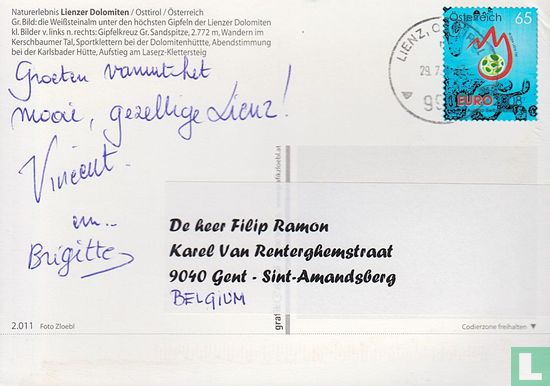 Naturerlebnis Lienzer Dolomiten / Osttirol / Österreich
Gr. Bild: die Weißsteinalm unter den höchsten Gipfeln der Lienzer Dolomiten
kl. Bilder v. links n. rechts: Gipfelkreuz Gr. Sandspitze, 2.772 m, Wandern im
Kerschbaumer Tal, Sportklettern bei der Dolomitenhüttte, Abendstimmung
bei der Karlsbader Hütte, Aufstieg am Laserz-Klettersteig
Österreich 65
LIENZ, O
29.7
99
EURO
Groeten vanuit het
mooie, gezellige Lienz!
Vincent
en..
Brigitte
De heer Filip Ramon
Karel Van Renterghemstraat
9040 Gent - Sint-Amandsberg
BELGIUM
2.011 Foto Zloebl
Codierzone freihalten ▼
catawiki